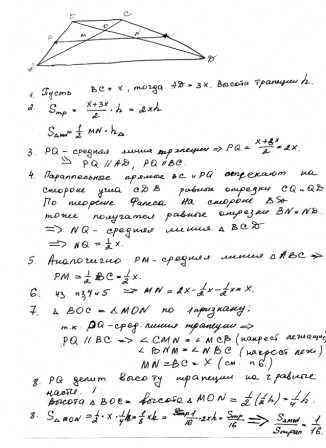 B C
O
P M N
A D
1. Пусть BC = x, тогда AD = 3x. Высота трапеции h.
2. Sтр = x+3x/2 · h = 2xh
S = 1/2 MN · h△
3. PQ - средняя линия трапеции => PQ = = 2x.
=> PQ || AD, PQ || BC.
4. Параллельные прямые BC и PQ отсекают на
стороне угла CDB равные отрезки CQ и QD
По теореме Фалеса на стороне BD
тоже получатся равные отрезки BN = ND.
=> NQ - средняя линия △ BCD
=> NQ = 1/2 x.
5. Аналогично PM - средняя линия △ ABC =>
PM = 1/2 BC = 1/2 x.
6. из п.3,4 и 5 => MN = 2x - 1/2 x - 1/2 x = x
7. △ BOC = △ MON по 1 признаку:
т.к. PQ - сред. линия трапеции =>
PQ || BC => ∠CMN = ∠MCB (накрест лежащие)
∠BNM = ∠NBC (накрест лежа)
MN = BC = x (см. п6.)
8. PQ делит высоту трапеции на 2 равные
части.
Высота △ BOC = высота △ MON = 1/2 (1/2 h) = 1/4 h.
8. S△MON = 1/2 · x · 1/4 h = 1/8 xh = · 2xh = Sтр/16 => = 1/16.